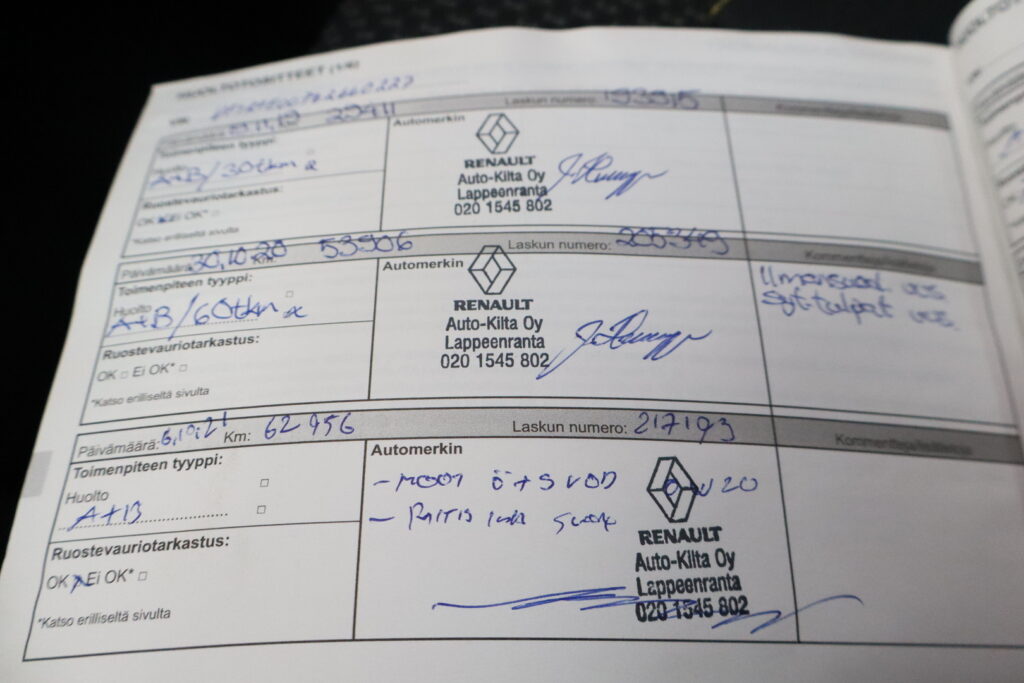 HUOLTOTOIMITTEET (1/4)
VIN:
Päivämäärä: 29411 Laskun numero: 193915
Toimenpiteen tyyppi: Automerkin
Huolto
A+B/30tkm x
RENAULT
Auto-Kilta Oy
Lappeenranta
020 1545 802
Ruostevauriotarkastus:
OK Ei OK*
*Katso erilliseltä sivulta
Päivämäärä: 30.10.20 Km: 53906 Laskun numero: 205349 Kommentteja/lisätietoja
Toimenpiteen tyyppi: Automerkin
Huolto
A+B/60tkm x
RENAULT
Auto-Kilta Oy
Lappeenranta
020 1545 802
Ilmansuod. ves.
Syt.tulpat ves.
Ruostevauriotarkastus:
OK □ Ei OK* □
*Katso erilliseltä sivulta
Päivämäärä: 6.10.21 Km: 62956 Laskun numero: 217193 Kommentteja/lisätietoja
Toimenpiteen tyyppi: Automerkin
Huolto
A+B
- MOOT Ö+SUOD
- RAITIS
RENAULT
Auto-Kilta Oy
Lappeenranta
020 1545 802
Ruostevauriotarkastus:
OK Ei OK* □
*Katso erilliseltä sivulta